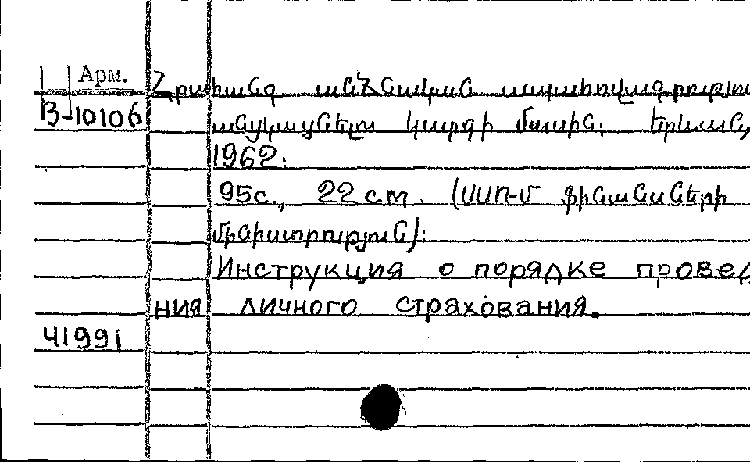 Арм. Հրահանգ անձնական ապահովագրությու
В-10106 անցկացնելու կարգի մասին. Երևան,
1962.
95с., 22 ст. (ՍՍՌՄ ֆինանսների
մինիստրություն):
Инструкция о порядке провед
ния личного страхования.
41991